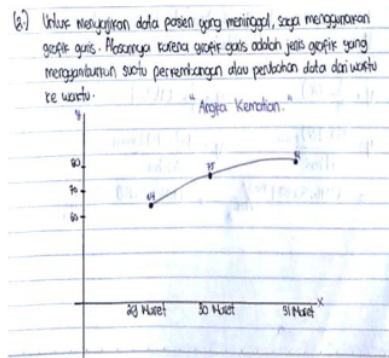 (2.) Untuk menyajikan data pasien yang meninggal, saya menggunakan
grafik garis. Alasannya karena grafik garis adalah jenis grafik yang
menggambarkan suatu perkembangan atau perubahan data dari waktu
ke waktu.
"Angka Kematian."
y
80
70
60
64
75
29 Maret 30 Maret 31 Maret
x